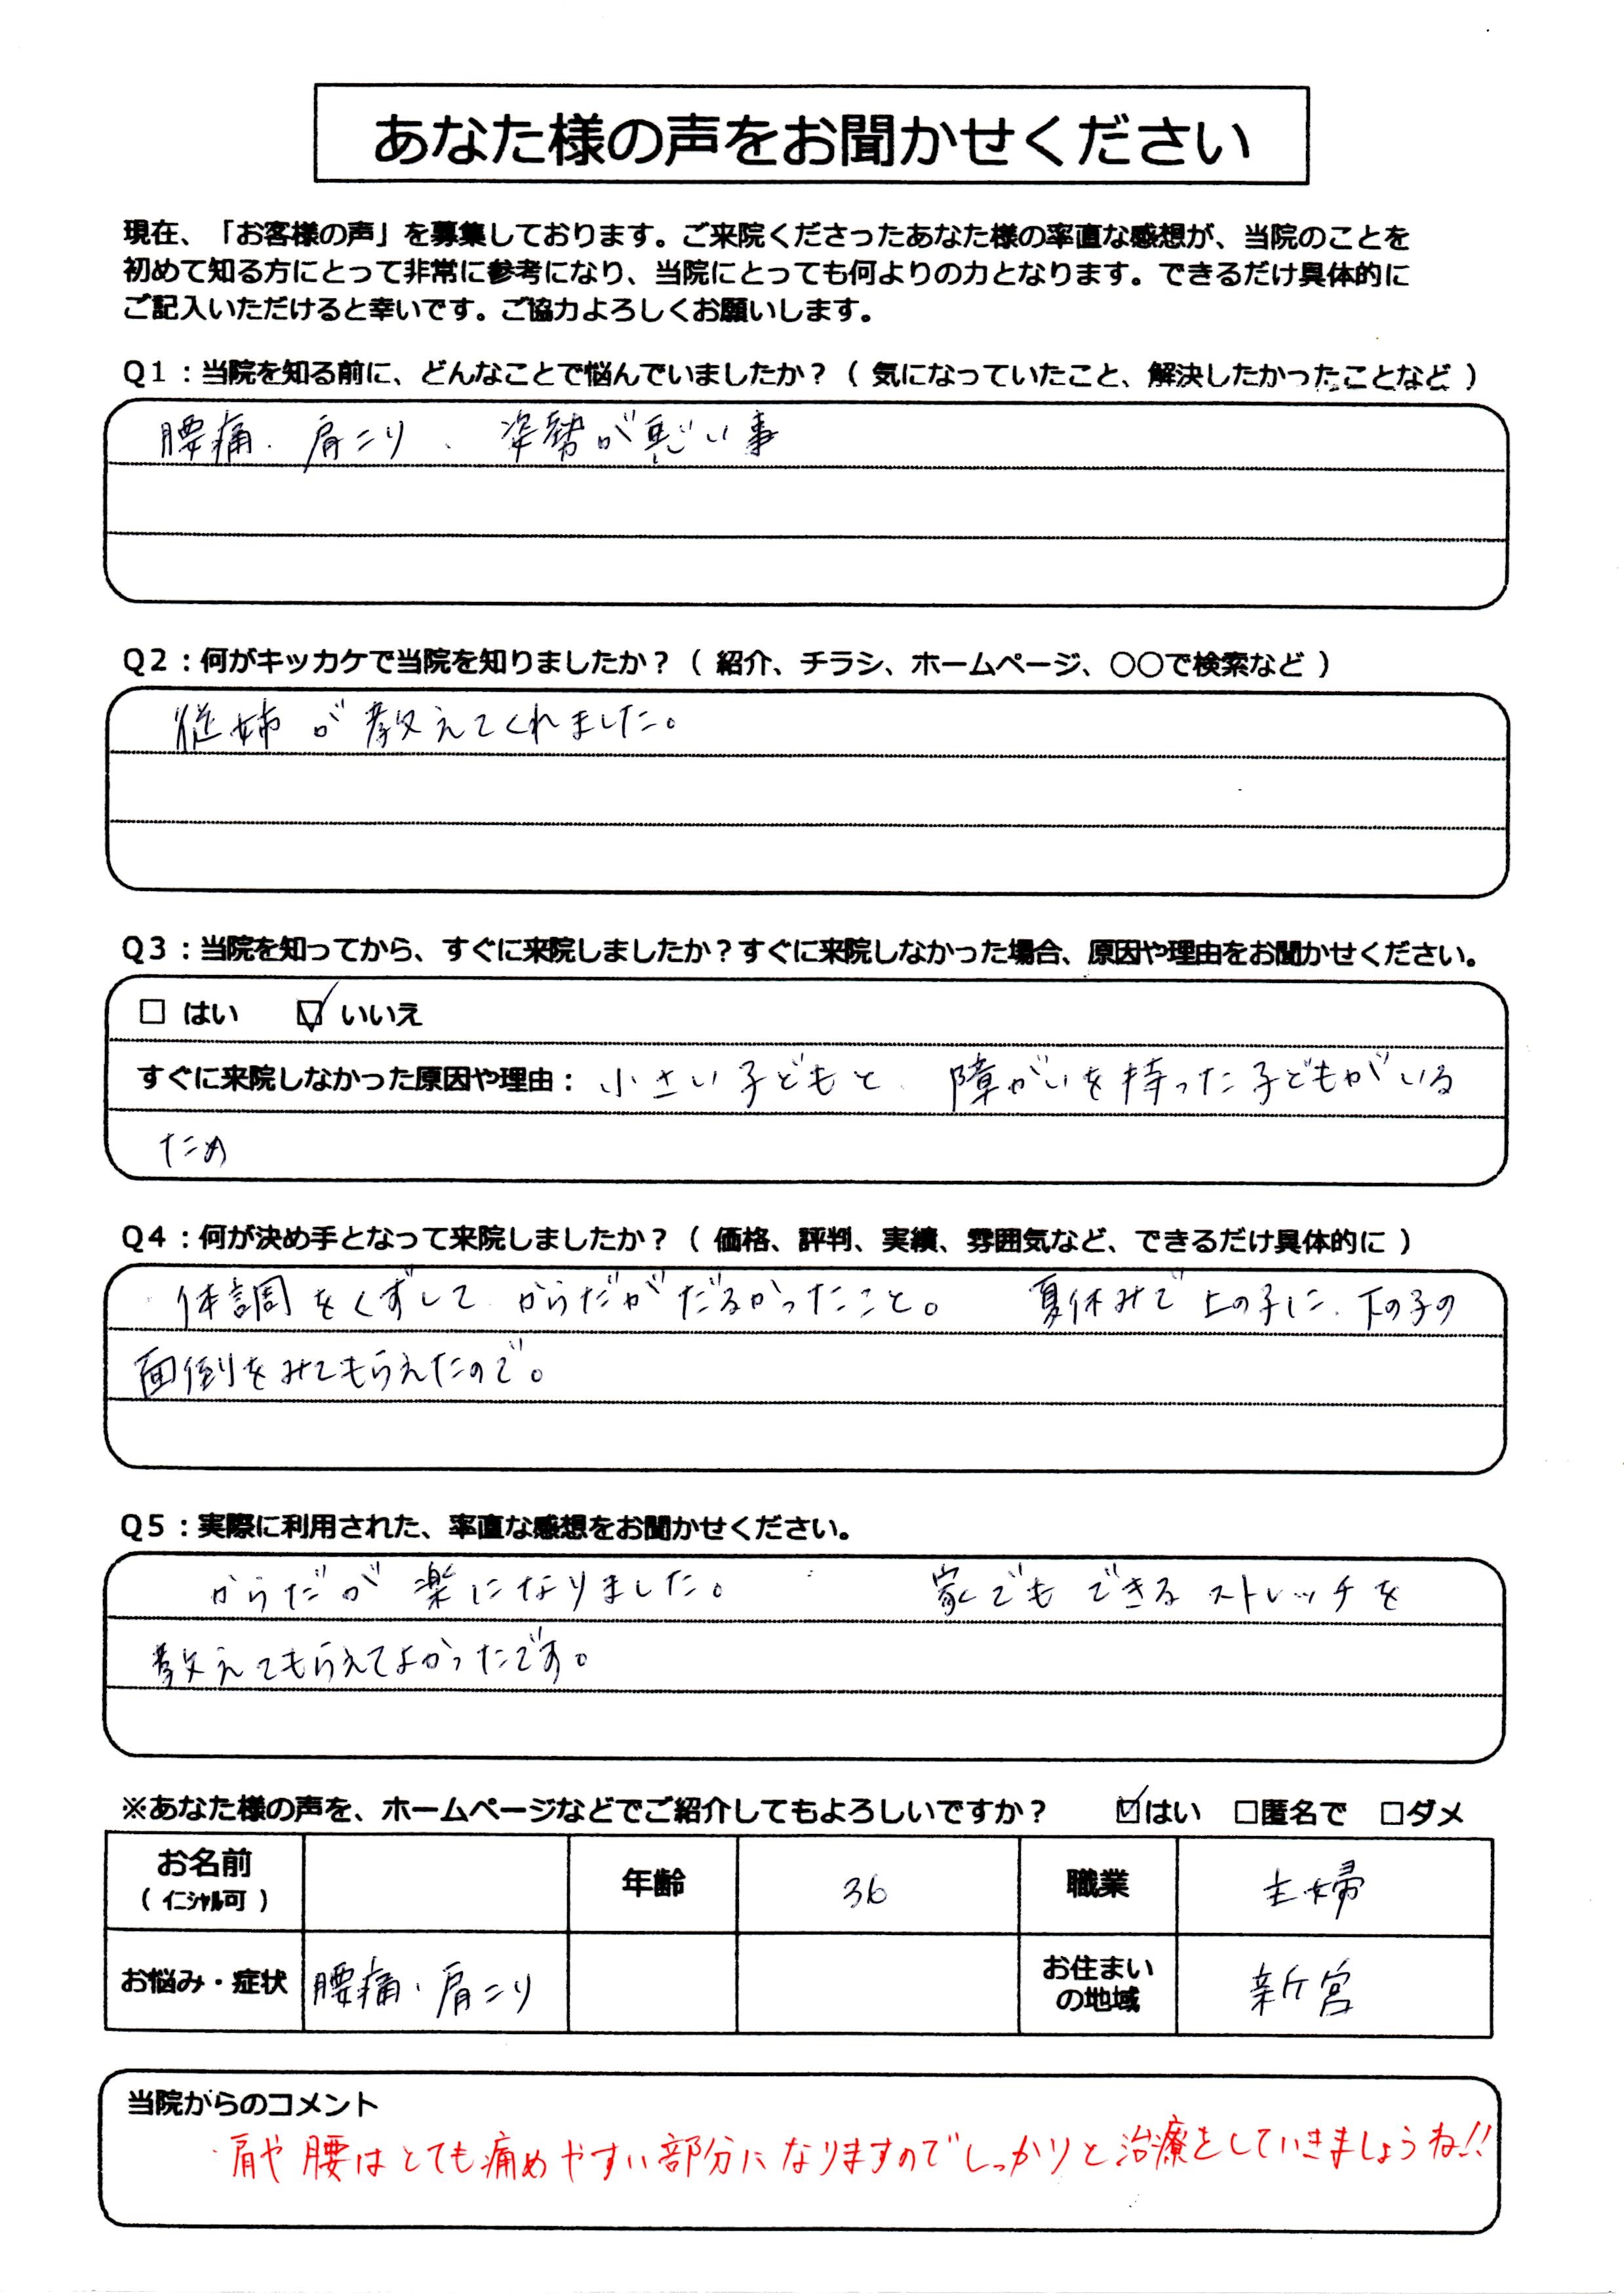 あなた様の声をお聞かせください
現在、「お客様の声」を募集しております。ご来院くださったあなた様の率直な感想が、当院のことを
初めて知る方にとって非常に参考になり、当院にとっても何よりの力となります。できるだけ具体的に
ご記入いただけると幸いです。ご協力よろしくお願いします。
Q1：当院を知る前に、どんなことで悩んでいましたか？（ 気になっていたこと、解決したかったことなど ）
腰痛、肩こり、姿勢が悪い事
Q2：何がキッカケで当院を知りましたか？（ 紹介、チラシ、ホームページ、○○で検索など ）
従姉が教えてくれました。
Q3：当院を知ってから、すぐに来院しましたか？すぐに来院しなかった場合、原因や理由をお聞かせください。
□ はい ☑ いいえ
すぐに来院しなかった原因や理由： 小さい子どもと、障がいを持った子どもがいる
ため
Q4：何が決め手となって来院しましたか？（ 価格、評判、実績、雰囲気など、できるだけ具体的に ）
体調をくずして、からだがだるかったこと。 夏休みで上の子に、下の子の
面倒をみてもらえたので。
Q5：実際に利用された、率直な感想をお聞かせください。
からだが楽になりました。 家でもできるストレッチを
教えてもらえてよかったです。
※あなた様の声を、ホームページなどでご紹介してもよろしいですか？ ☑はい □匿名で □ダメ
お名前 年齢 36 職業 主婦
（ イニシャル可 ）
お悩み・症状 腰痛、肩こり お住まいの地域 新宮
当院からのコメント
肩や腰はとても痛めやすい部分になりますのでしっかりと治療をしていきましょうね!!